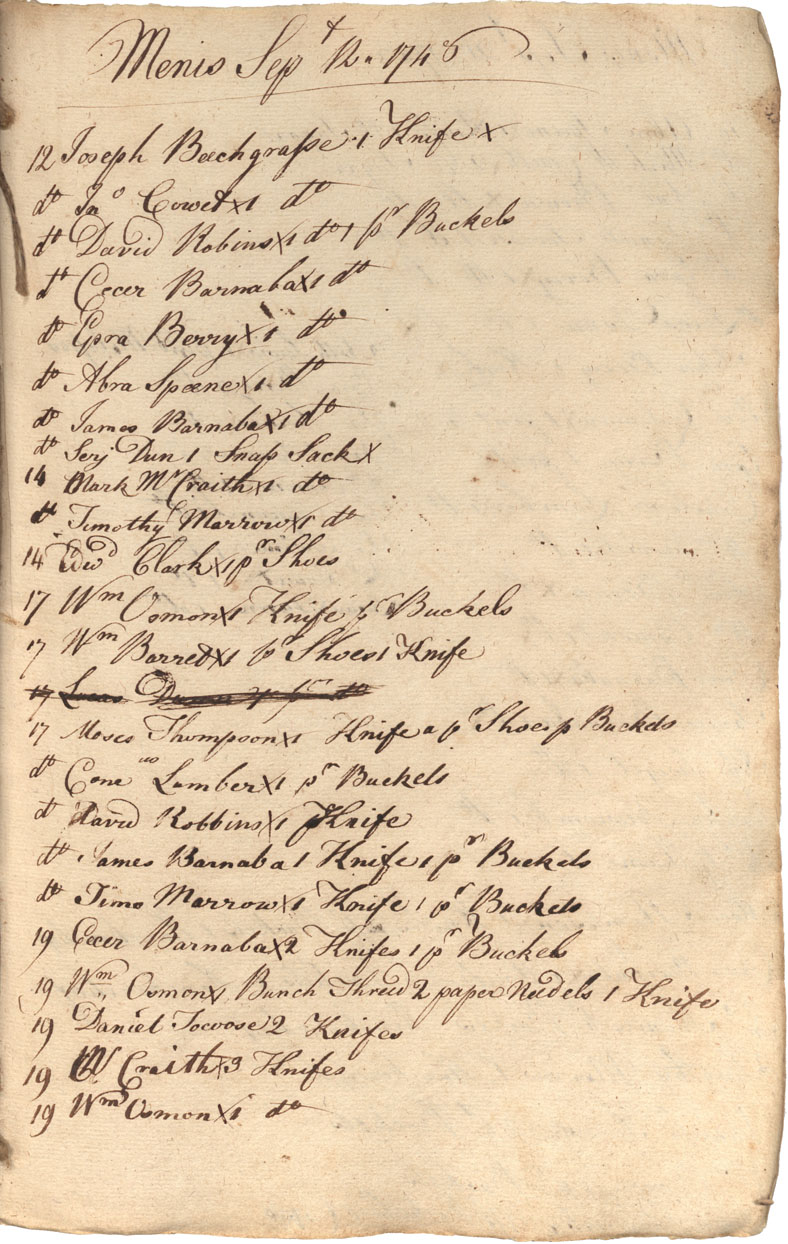 Menis Sept 12. 1746
12 Joseph Beechgrasse 1 Knife x
do Jno Cowet x 1 do
do David Robins x 1 do 1 pr Buckels
do Cecer Barnaba x 1 do
do Epra Berry x 1 do
do Abra Speene x 1 do
do James Barnaba x 1 do
do Serj Dun 1 Snap Sack x
14 Mark McCraith x 1 do
do Timothy Marrow x 1 do
14 Edwd Clark x 1 pr Shoes
17 Wm Osmon x 1 Knife pr Buckels
17 Wm Barret x 1 pr Shoes 1 Knife
17 pr do
17 Moses Thompson x 1 Knife a pr Shoes p Buckels
do Lumber x 1 pr Buckels
do David Robbins x 1 Knife
do James Barnaba 1 Knife 1 pr Buckels
do Timo Marrow x 1 Knife 1 pr Buckels
19 Cecer Barnaba x 2 Knifes 1 pr Buckels
19 Wm Osmon x Bunch Thred 2 paper Needels 1 Knife
19 Daniel Tocvose 2 Knifes
19 Mc Craith x 3 Knifes
19 Wm Osmon x 1 do